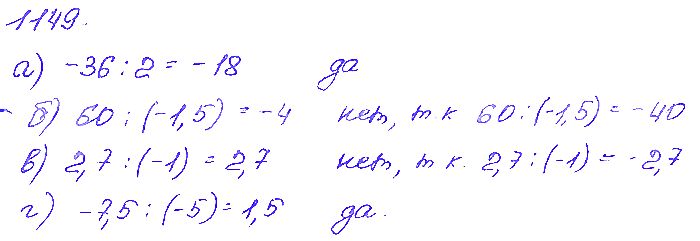 1149.
а) -36 : 2 = -18 да
б) 60 : (-1,5) = -4 нет, т к 60 : (-1,5) = -40
в) 2,7 : (-1) = 2,7 нет, т к. 2,7 : (-1) = -2,7
г) -7,5 : (-5) = 1,5 да.